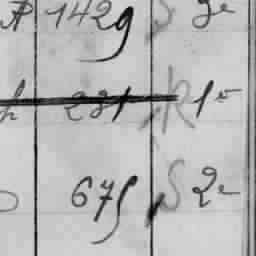 1429 S 2e
231 R 1e
675 S 2e